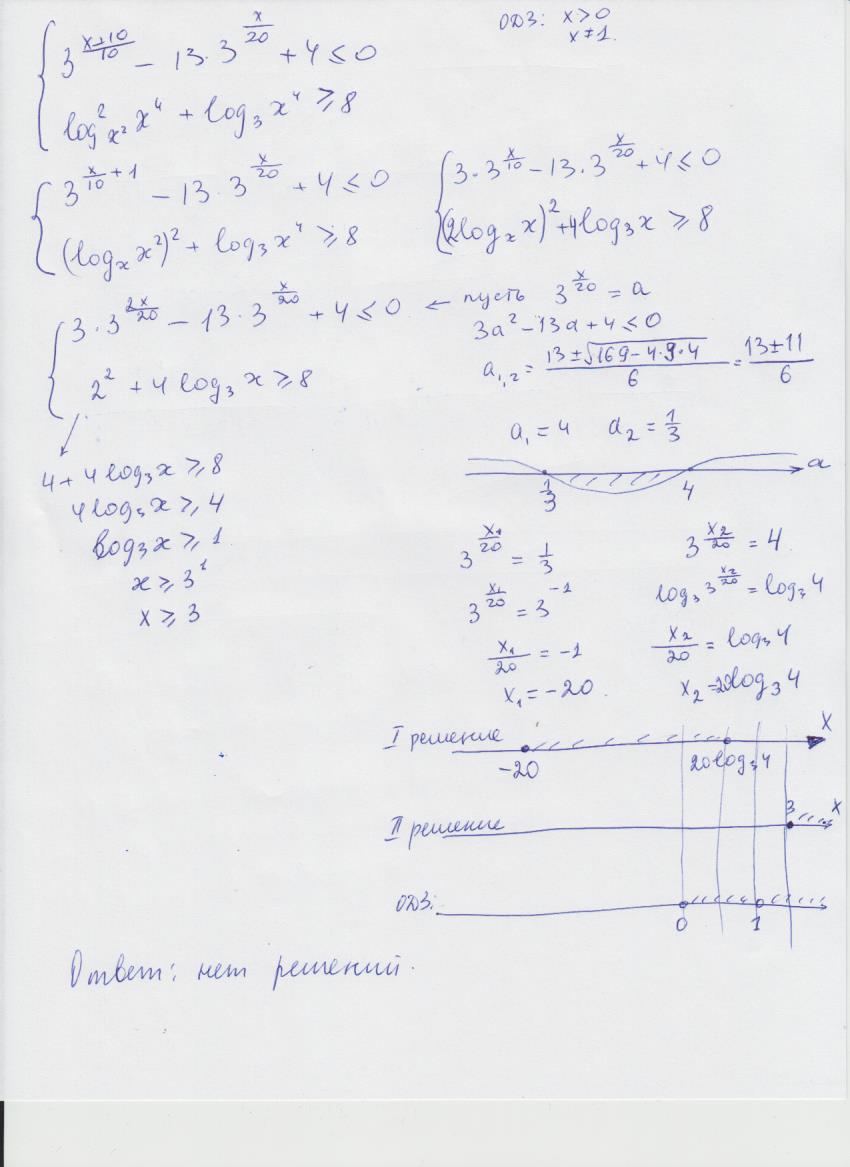 3^((x+10)/10) − 13·3^(x/20) + 4 ≤ 0
ОДЗ: x > 0
x ≠ 1.
log²_(x²) x⁴ + log₃ x⁴ ≥ 8
3^(x/10 + 1) − 13·3^(x/20) + 4 ≤ 0
(log_x x²)² + log₃ x⁴ ≥ 8
3·3^(x/10) − 13·3^(x/20) + 4 ≤ 0
(2log_x x)² + 4log₃ x ≥ 8
3·3^(2x/20) − 13·3^(x/20) + 4 ≤ 0 ← пусть 3^(x/20) = a
2² + 4 log₃ x ≥ 8
3a² − 13a + 4 ≤ 0
a₁,₂ = (13 ± √(169 − 4·3·4))/6 = (13 ± 11)/6
a₁ = 4 a₂ = 1/3
1/3 4 a
4 + 4 log₃ x ≥ 8
4 log₃ x ≥ 4
log₃ x ≥ 1
x ≥ 3¹
x ≥ 3
3^(x₁/20) = 1/3
3^(x₁/20) = 3^(−1)
x₁/20 = −1
x₁ = −20.
3^(x₂/20) = 4
log₃ 3^(x₂/20) = log₃ 4
x₂/20 = log₃ 4
x₂ = 20log₃ 4
I решение x
−20 20log₃ 4
II решение 3 x
ОДЗ:
0 1
Ответ: нет решений.